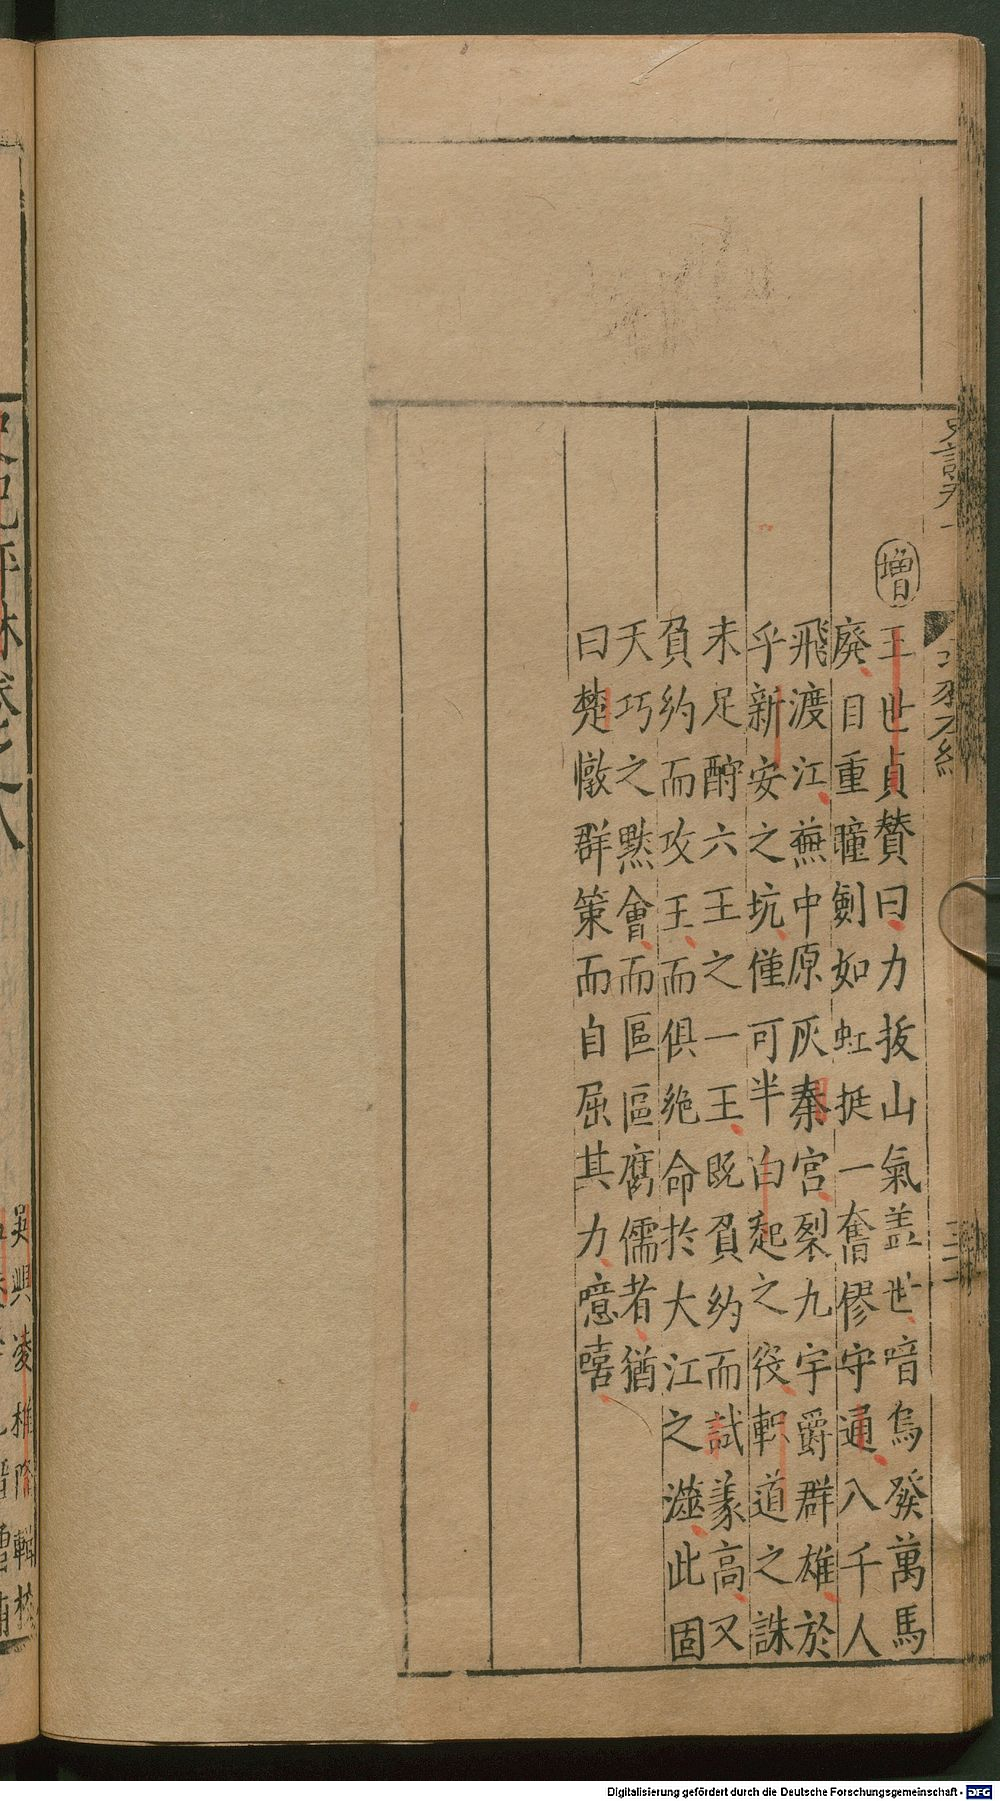 增
王世貞贊曰力拔山氣盖世喑烏發萬馬
廢目重瞳劍如虹挺一奮僇守通八千人
飛渡江蕪中原灰秦宮裂九宇爵群雄於
乎新安之坑僅可半白起之役軹道之誅
未足酹六王之一王既負約而試羕高又
負約而攻王而俱絶命於大江之澨此固
天巧之黙會而區區腐儒者猶
曰楚憞群策而自屈其力噫嘻
Digitalisierung gefördert durch die Deutsche Forschungsgemeinschaft - DFG